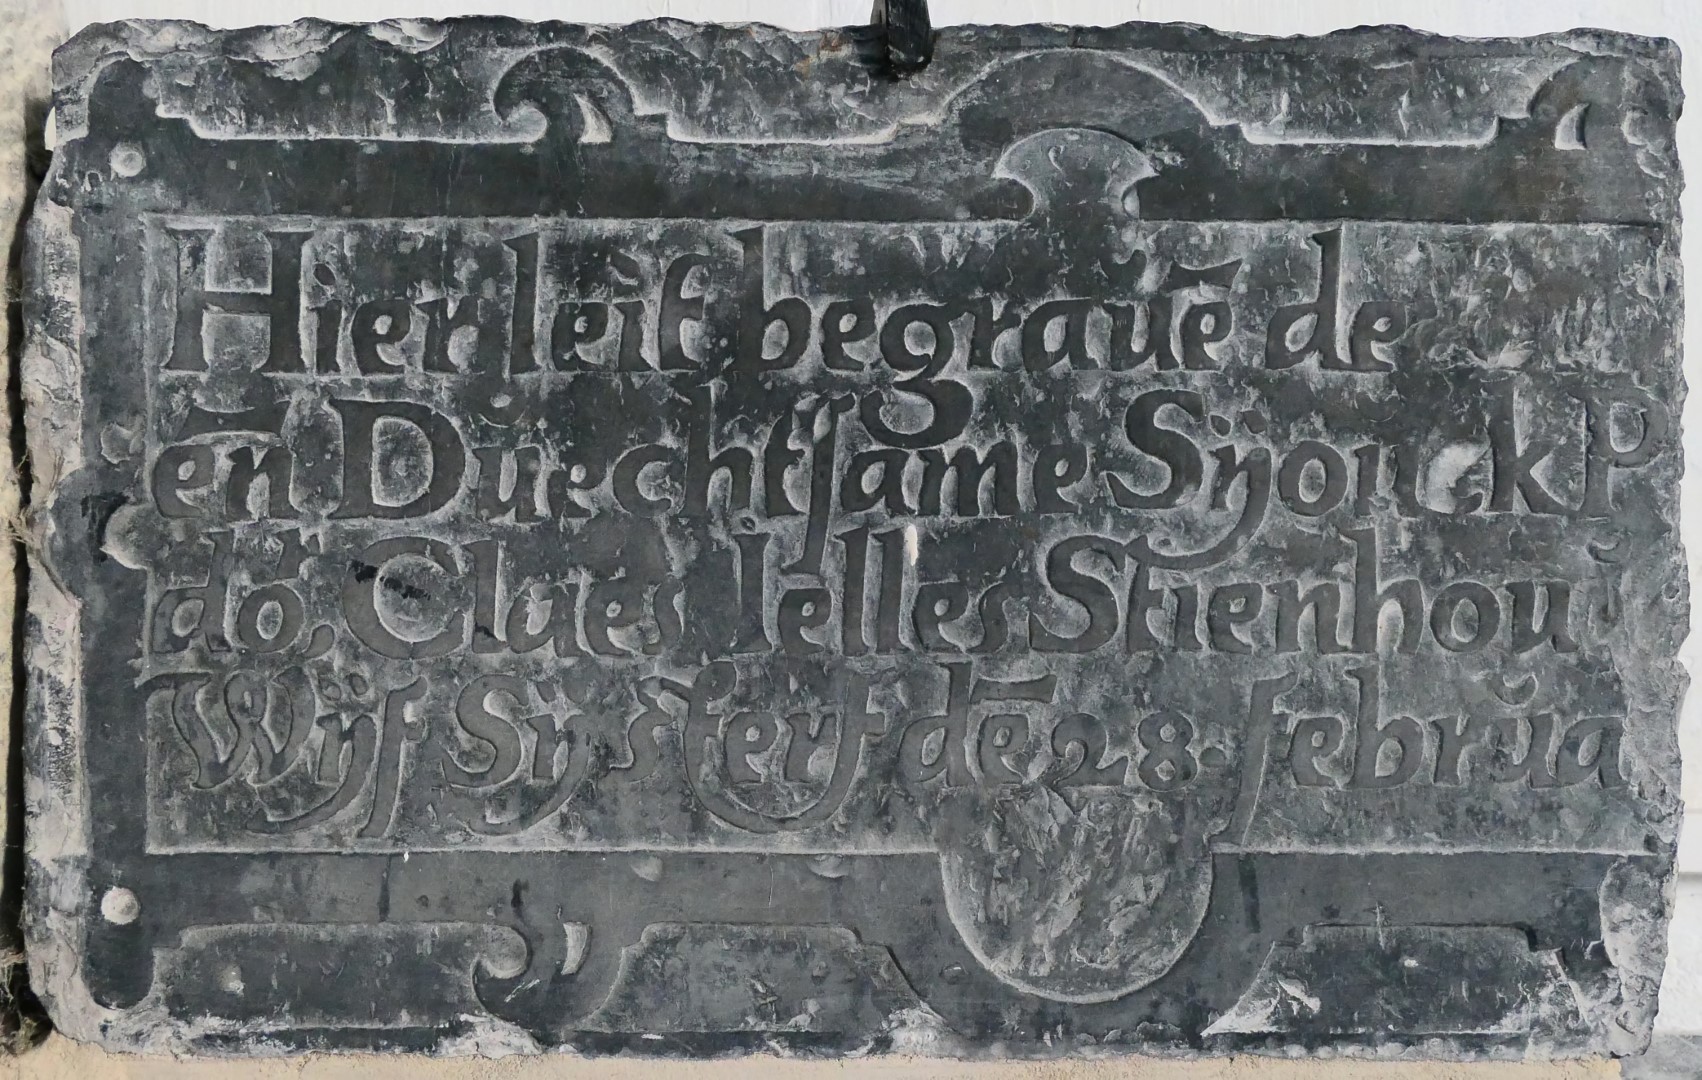 Hier leit begrauē de
en̄ Duechtſame Sÿouck P
do, Claes Ielles Stienhou
Wÿf Sÿ sterf dē 28. febrŭa